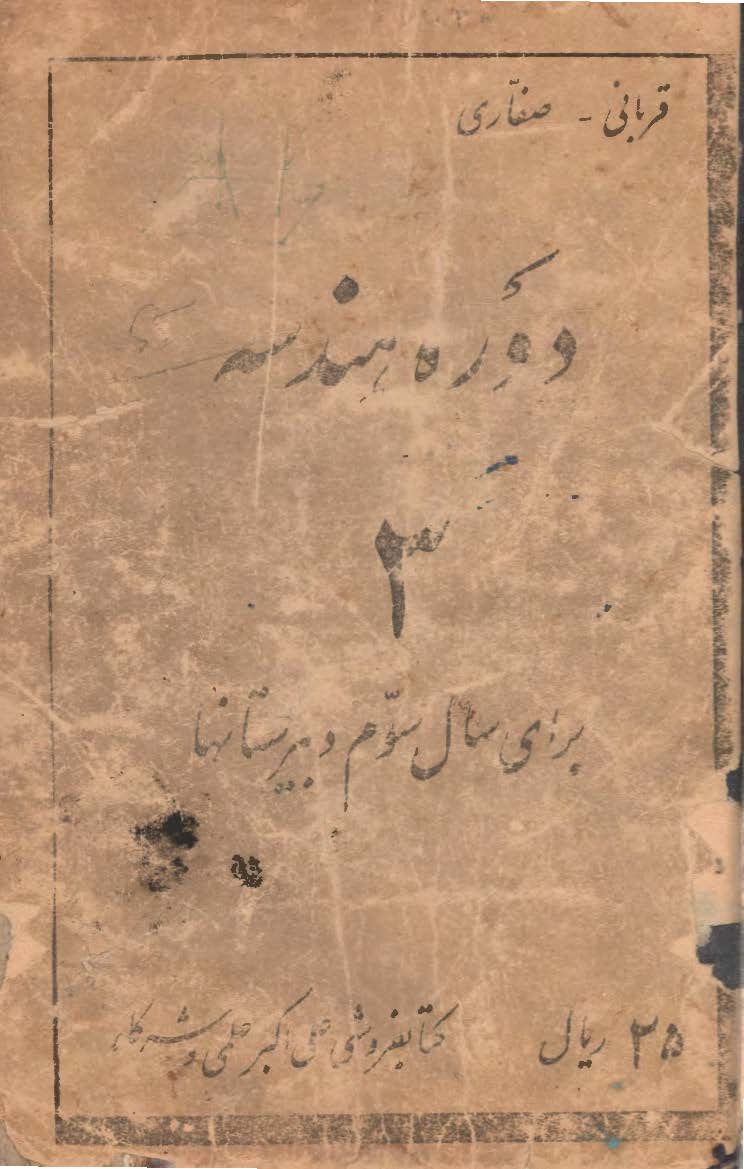 قربانی - صفّاری
دوره هندسه
۳
برای سال سوّم دبیرستانها
۲۵ ریال
کتابفروشی علی اکبر علمی و شرکاء